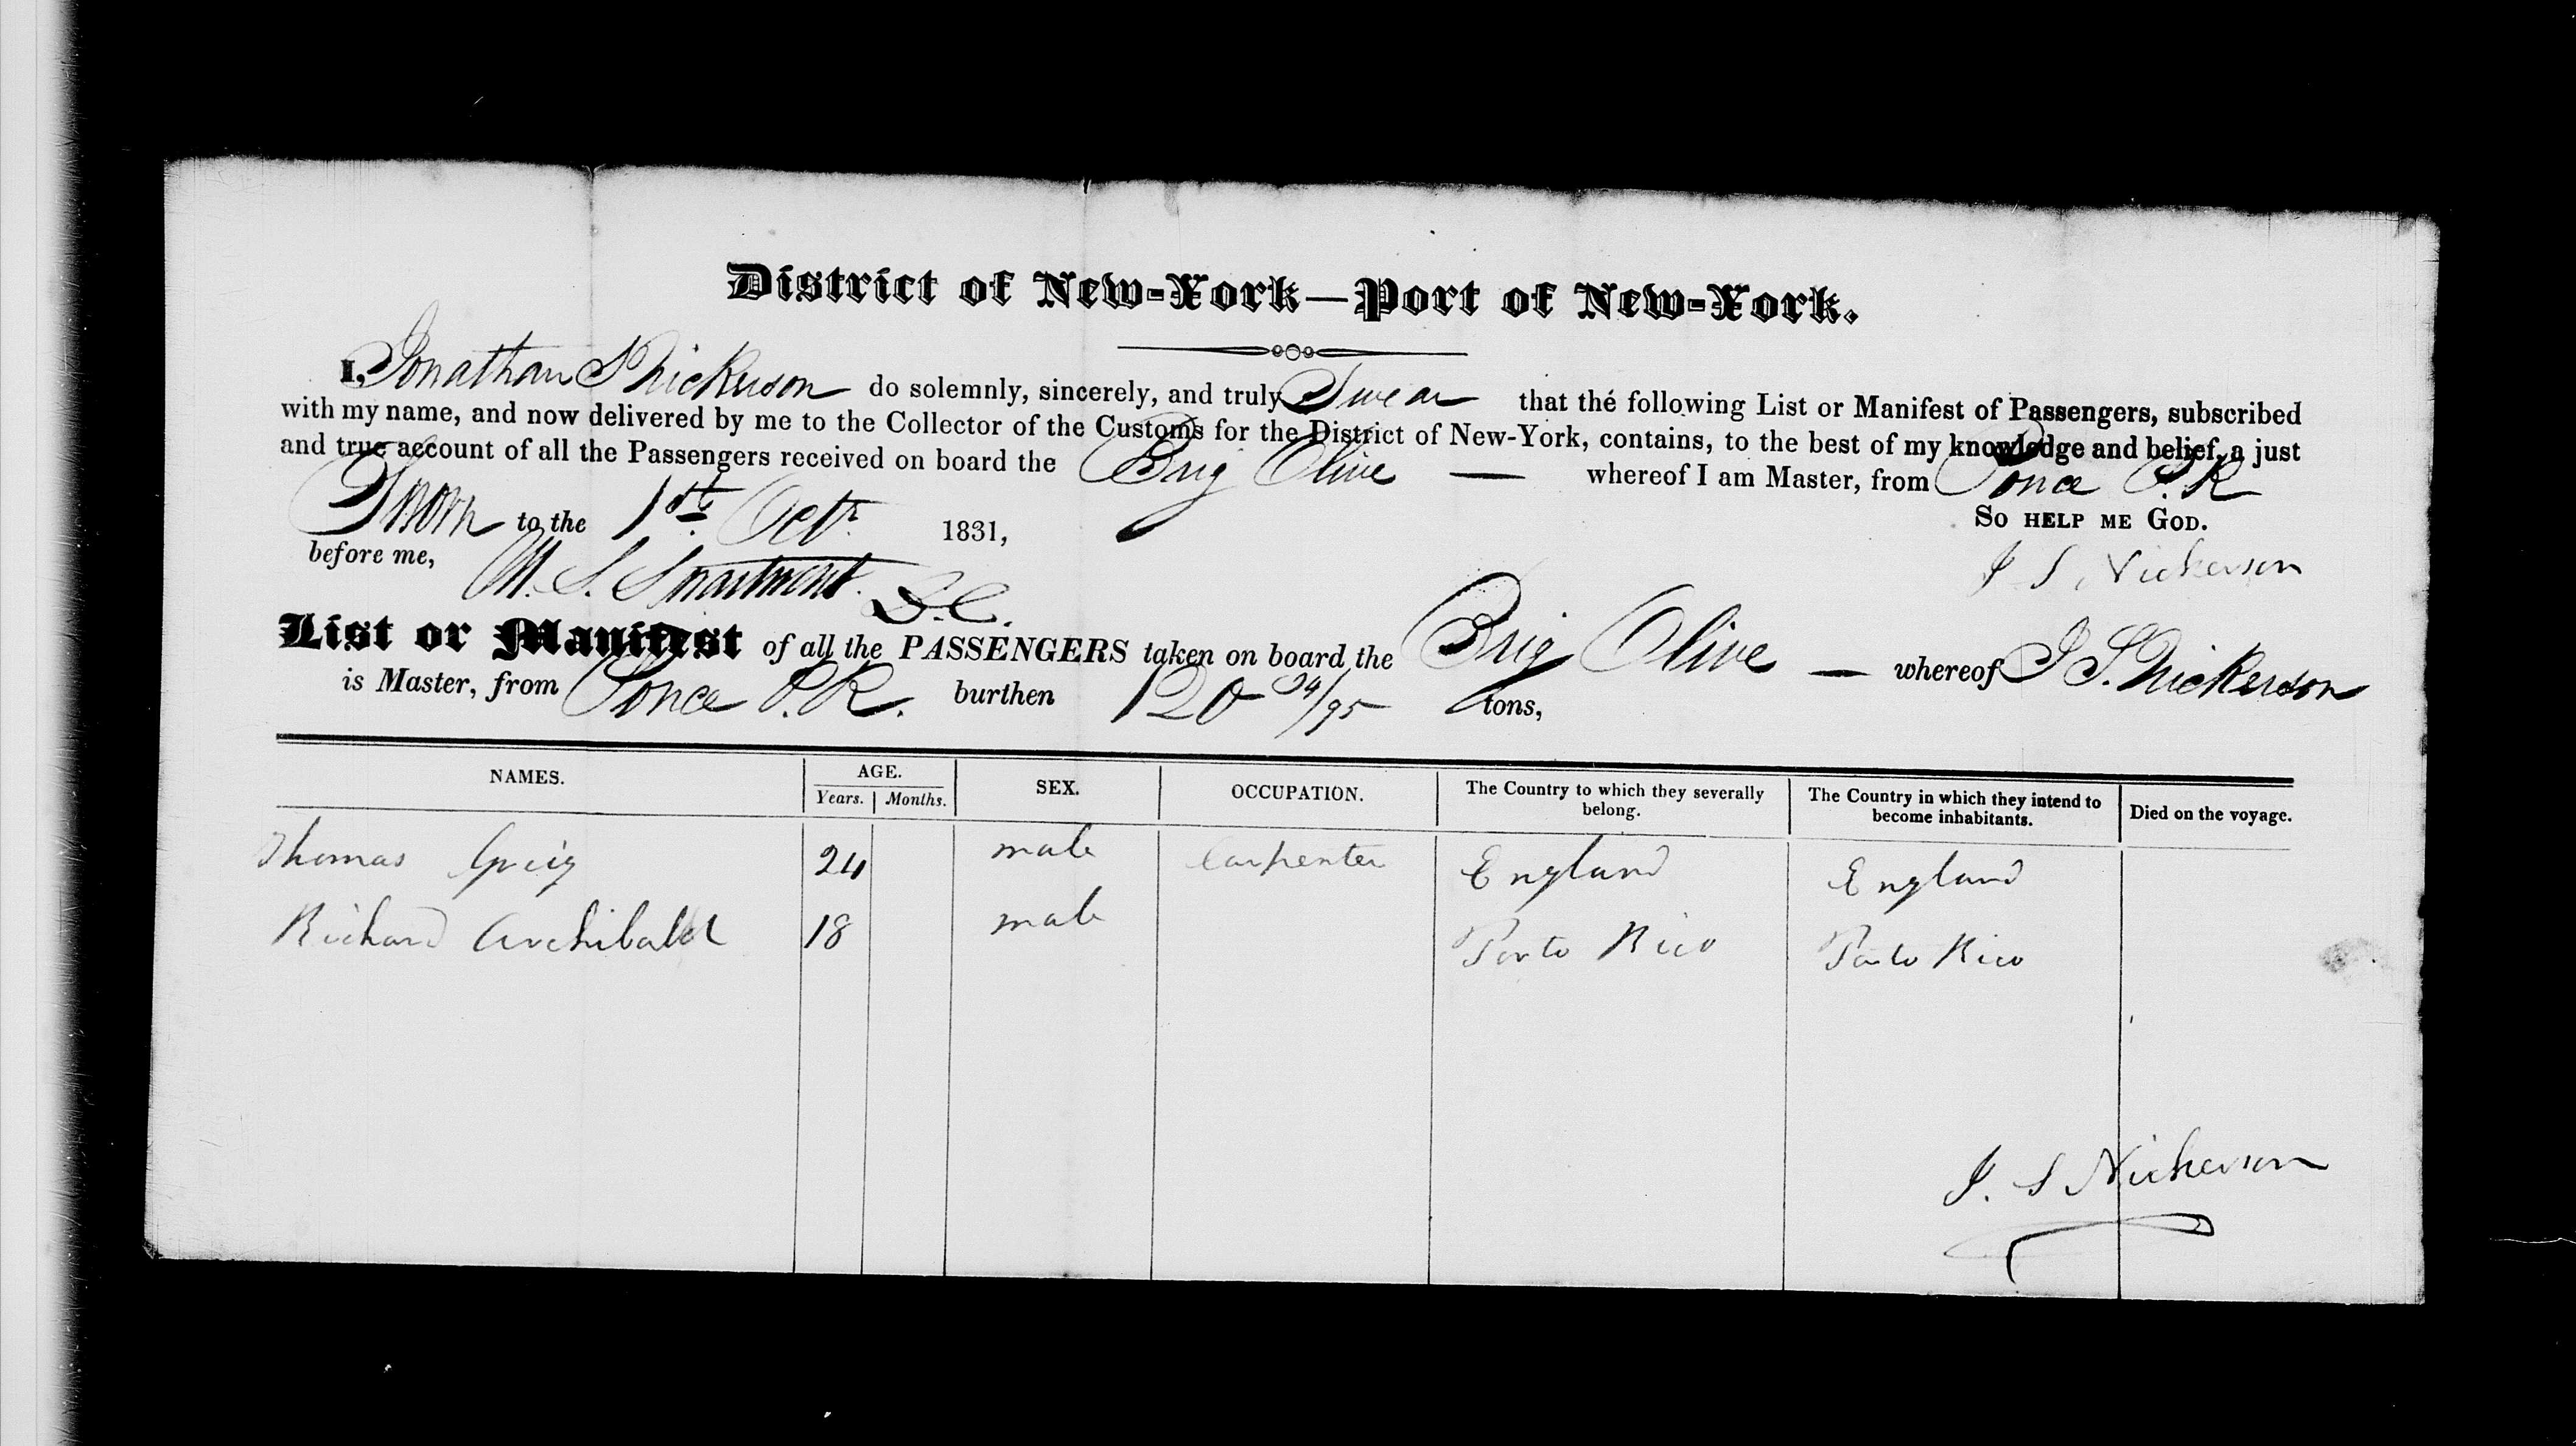 District of New-York—Port of New-York.
I, Jonathan S Nickerson do solemnly, sincerely, and truly Swear that the following List or Manifest of Passengers, subscribed
with my name, and now delivered by me to the Collector of the Customs for the District of New-York, contains, to the best of my knowledge and belief, a just
and true account of all the Passengers received on board the Brig Olive — whereof I am Master, from Ponce P.R
Sworn to the 1st Octr 1831, SO HELP ME GOD.
before me, M. S. D.C. J S Nickerson
List or Manifest of all the PASSENGERS taken on board the Brig Olive — whereof J S. Nickerson
is Master, from Ponce P.R. burthen 120 /95 tons,
NAMES. AGE. SEX. OCCUPATION. The Country to which they severally belong. The Country in which they intend to become inhabitants. Died on the voyage.
Years. Months.
Thomas Greig 24 male Carpenter England England
Richard Archibald 18 male Porto Rico Porto Rico
J. S Nickerson